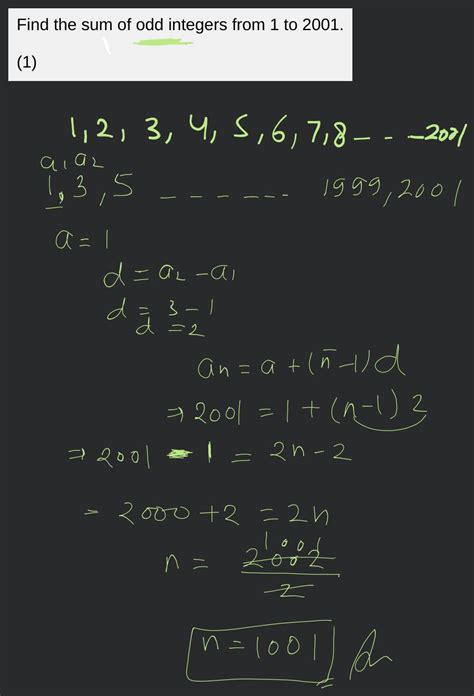 Find the sum of odd integers from 1 to 2001.
(1)
1, 2, 3, 4, 5, 6, 7, 8 - - - - 2001
a₁ a₂
1, 3, 5 - - - - - - 1999, 2001
a = 1
d = a₂ - a₁
d = 3 - 1
d = 2
an = a + (n - 1) d
⇒ 2001 = 1 + (n-1) 2
⇒ 2001 - 1 = 2n - 2
= 2000 + 2 = 2n
1001
n = 2002/2
n = 1001